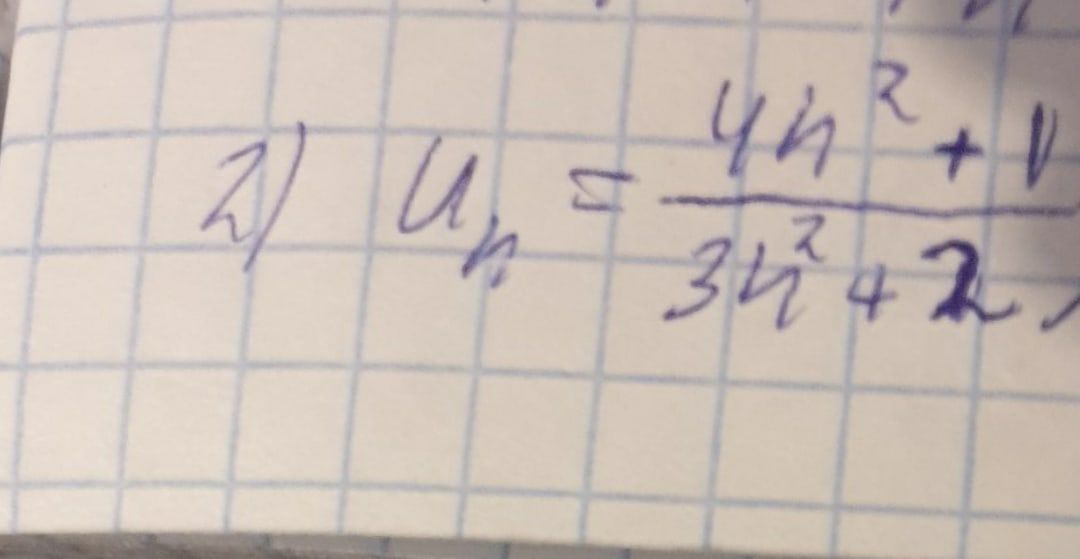 2) Uₙ = (4n² + 1)/(3n² + 2),